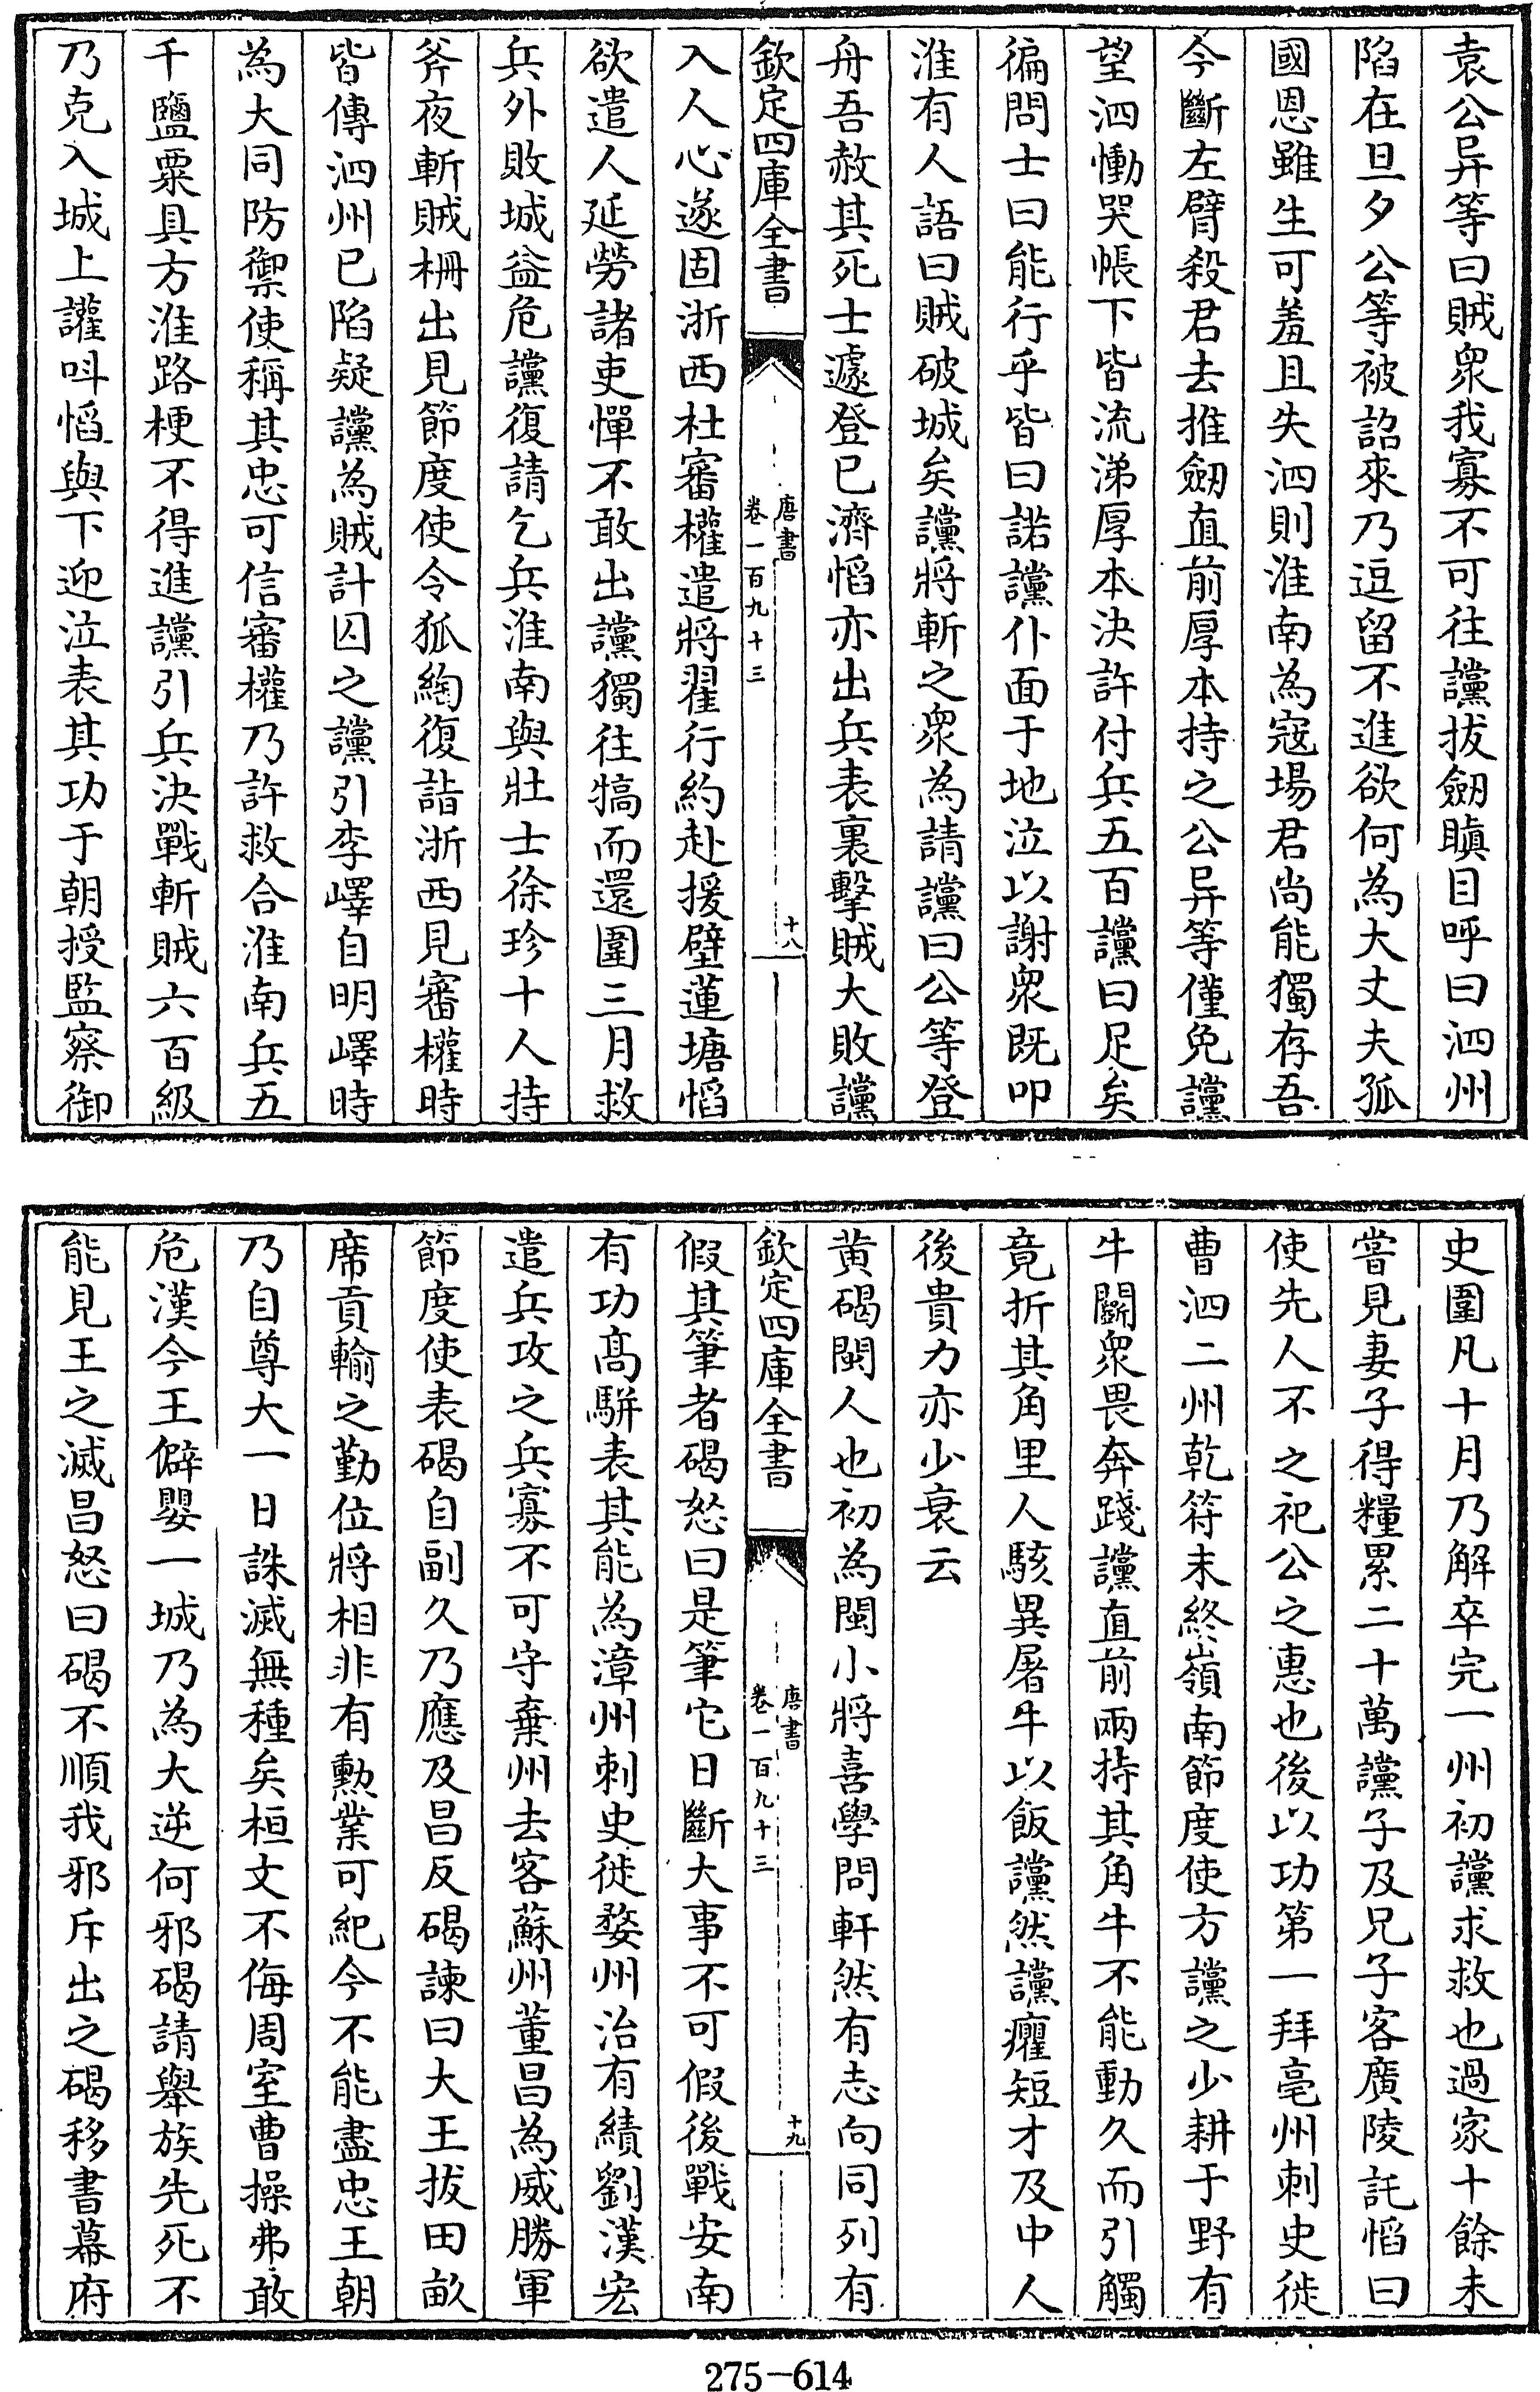 袁公异等曰賊衆我寡不可往讜拔劒瞋目呼曰泗州
陷在旦夕公等被詔來乃逗留不進欲何為大丈夫孤
國恩雖生可羞且失泗則淮南為寇場君尚能獨存吾
今斷左臂殺君去推劒直前厚本持之公异等僅免讜
望泗慟哭帳下皆流涕厚本決許付兵五百讜曰足矣
徧問士曰能行乎皆曰諾讜仆面于地泣以謝衆既叩
淮有人語曰賊破城矣讜將斬之衆為請讜曰公等登
舟吾赦其死士遽登已濟慆亦出兵表裏擊賊大敗讜
欽定四庫全書
唐書
卷一百九十三
十八
入人心遂固浙西杜審權遣將翟行約赴援壁蓮塘慆
欲遣人延勞諸吏憚不敢出讜獨往犒而還圍三月救
兵外敗城益危讜復請乞兵淮南與壯士徐珍十人持
斧夜斬賊柵出見節度使令狐綯復詣浙西見審權時
皆傳泗州已陷疑讜為賊計囚之讜引李嶧自明嶧時
為大同防禦使稱其忠可信審權乃許救合淮南兵五
千鹽粟具方淮路梗不得進讜引兵決戰斬賊六百級
乃克入城上讙呌慆與下迎泣表其功于朝授監察御
史圍凡十月乃解卒完一州初讜求救也過家十餘未
嘗見妻子得糧累二十萬讜子及兄子客廣陵託慆曰
使先人不之祀公之惠也後以功第一拜亳州刺史徙
曹泗二州乾符末終嶺南節度使方讜之少耕于野有
牛鬭衆畏奔踐讜直前兩持其角牛不能動久而引觸
竟折其角里人駭異屠牛以飯讜然讜癯短才及中人
後貴力亦少衰云
黃碣閩人也初為閩小將喜學問軒然有志向同列有
欽定四庫全書
唐書
卷一百九十三
十九
假其筆者碣怒曰是筆它日斷大事不可假後戰安南
有功高駢表其能為漳州刺史徙婺州治有績劉漢宏
遣兵攻之兵寡不可守棄州去客蘇州董昌為威勝軍
節度使表碣自副久乃應及昌反碣諫曰大王拔田畝
席貢輸之勤位將相非有勲業可紀今不能盡忠王朝
乃自尊大一日誅滅無種矣桓文不侮周室曹操弗敢
危漢今王僻嬰一城乃為大逆何邪碣請舉族先死不
能見王之滅昌怒曰碣不順我邪斥出之碣移書幕府
275-614